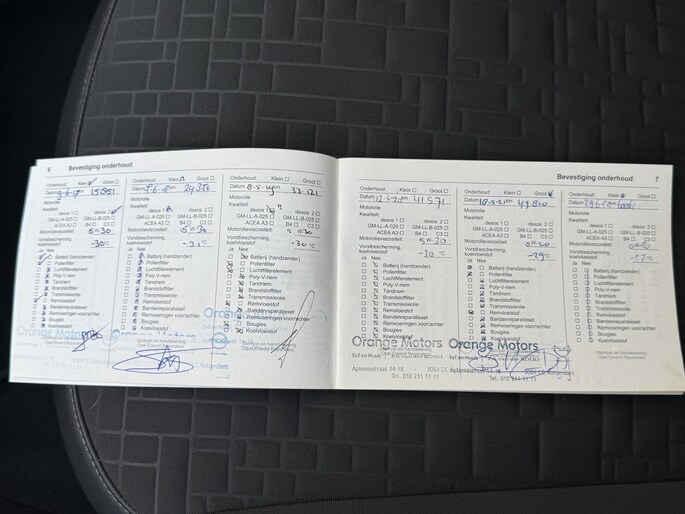 6 Bevestiging onderhoud
Onderhoud: Klein Groot
Datum 15851
Motorolie
Kwaliteit:
dexos 1 dexos 2
GM-LL-A-025 GM-LL-B-025
ACEA A3 B4 C3
Motorolieviscositeit:
5-30
Vorstbescherming,
koelvloeistof
-30°C
Ja Nee
Batterij (handzender)
Pollenfilter
Luchtfilterelement
Poly-V-riem
Tandriem
Brandstoffilter
Transmissieolie
Remvloeistof
Bandenreparatieset
Remvoeringen voor/achter
Bougies
Koelvloeistof
Onderhoud: Klein Groot
Datum 24350
Motorolie
Kwaliteit:
dexos 1 dexos 2
GM-LL-A-025 GM-LL-B-025
ACEA A3 B4 C3
Motorolieviscositeit:
5W30
Vorstbescherming,
koelvloeistof
Ja Nee
Batterij (handzender)
Pollenfilter
Luchtfilterelement
Poly-V-riem
Tandriem
Brandstoffilter
Transmissieolie
Remvloeistof
Bandenreparatieset
Remvoeringen voor/achter
Bougies
Koelvloeistof
Onderhoud: Klein Groot
Datum 8-5-19 33.121
Motorolie
Kwaliteit:
dexos 1 dexos 2
GM-LL-A-025 GM-LL-B-025
ACEA A3 B4 C3
Motorolieviscositeit:
5W30
Vorstbescherming,
koelvloeistof
-30°C
Ja Nee
Batterij (handzender)
Pollenfilter
Luchtfilterelement
Poly-V-riem
Tandriem
Brandstoffilter
Transmissieolie
Remvloeistof
Bandenreparatieset
Remvoeringen voor/achter
Bougies
Koelvloeistof
Bevestiging onderhoud 7
Onderhoud: Klein Groot
Datum 41571
Motorolie
Kwaliteit:
dexos 1 dexos 2
GM-LL-A-025 GM-LL-B-025
ACEA A3 B4 C3
Motorolieviscositeit:
5W-30
Vorstbescherming,
koelvloeistof
-30°C
Ja Nee
Batterij (handzender)
Pollenfilter
Luchtfilterelement
Poly-V-riem
Tandriem
Brandstoffilter
Transmissieolie
Remvloeistof
Bandenreparatieset
Remvoeringen voor/achter
Bougies
Koelvloeistof
Orange Motors
Aploniastraat 14-18
Tel. 010 211 11 11
Onderhoud: Klein Groot
Datum 18-5-21 49.820
Motorolie
Kwaliteit:
dexos 1 dexos 2
GM-LL-A-025 GM-LL-B-025
ACEA A3 B4 C3
Motorolieviscositeit:
0W20
Vorstbescherming,
koelvloeistof
-29°C
Ja Nee
Batterij (handzender)
Pollenfilter
Luchtfilterelement
Poly-V-riem
Tandriem
Brandstoffilter
Transmissieolie
Remvloeistof
Bandenreparatieset
Remvoeringen voor/achter
Bougies
Koelvloeistof
Orange Motors
Tel. 010 211 11 11
Onderhoud: Klein Groot
Datum
Motorolie
Kwaliteit:
dexos 1 dexos 2
GM-LL-A-025 GM-LL-B-025
ACEA A3 B4 C3
Motorolieviscositeit:
0W20
Vorstbescherming,
koelvloeistof
Ja Nee
Batterij (handzender)
Pollenfilter
Luchtfilterelement
Poly-V-riem
Tandriem
Brandstoffilter
Transmissieolie
Remvloeistof
Bandenreparatieset
Remvoeringen voor/achter
Bougies
Koelvloeistof